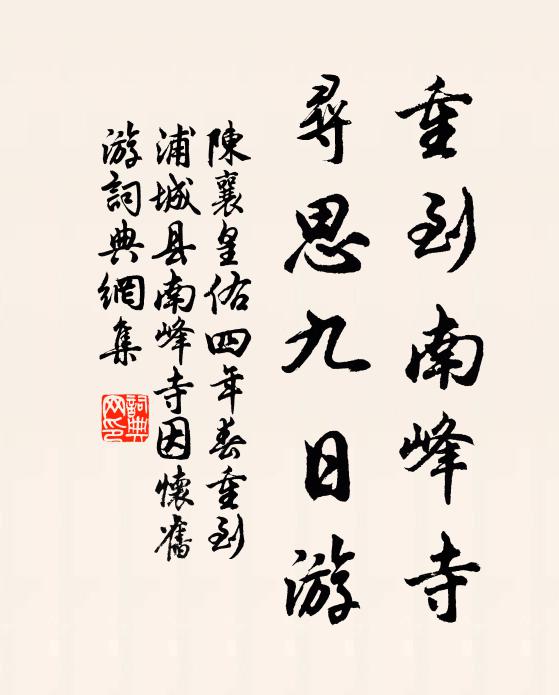 重到南峰寺
尋思九日游
陳襄皇佑四年春重到
浦城县南峰寺因懷舊
游詞典網集
詞典网印